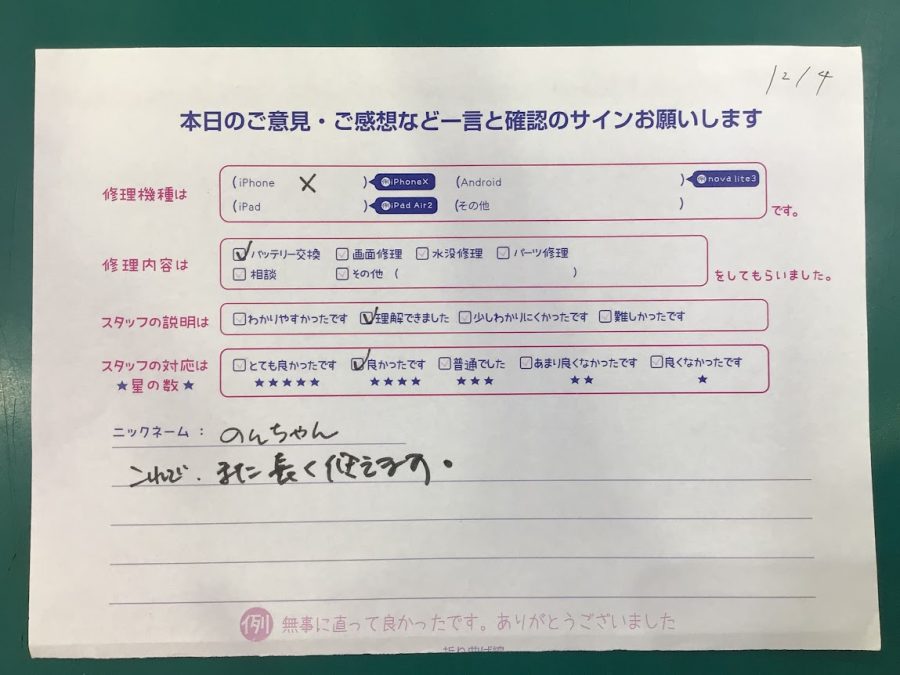 12/4
本日のご意見・ご感想など一言と確認のサインお願いします
修理機種は (iPhone X ) 例iPhoneX (Android ) 例nova lite3
(iPad ) 例iPad Air2 (その他 ) です。
修理内容は バッテリー交換 画面修理 水没修理 パーツ修理
相談 その他 ( ) をしてもらいました。
スタッフの説明は わかりやすかったです 理解できました 少しわかりにくかったです 難しかったです
スタッフの対応は とても良かったです 良かったです 普通でした あまり良くなかったです 良くなかったです
★星の数★ ★★★★★ ★★★★ ★★★ ★★ ★
ニックネーム: のんちゃん
これで、また長く使えます。
例 無事に直って良かったです。ありがとうございました